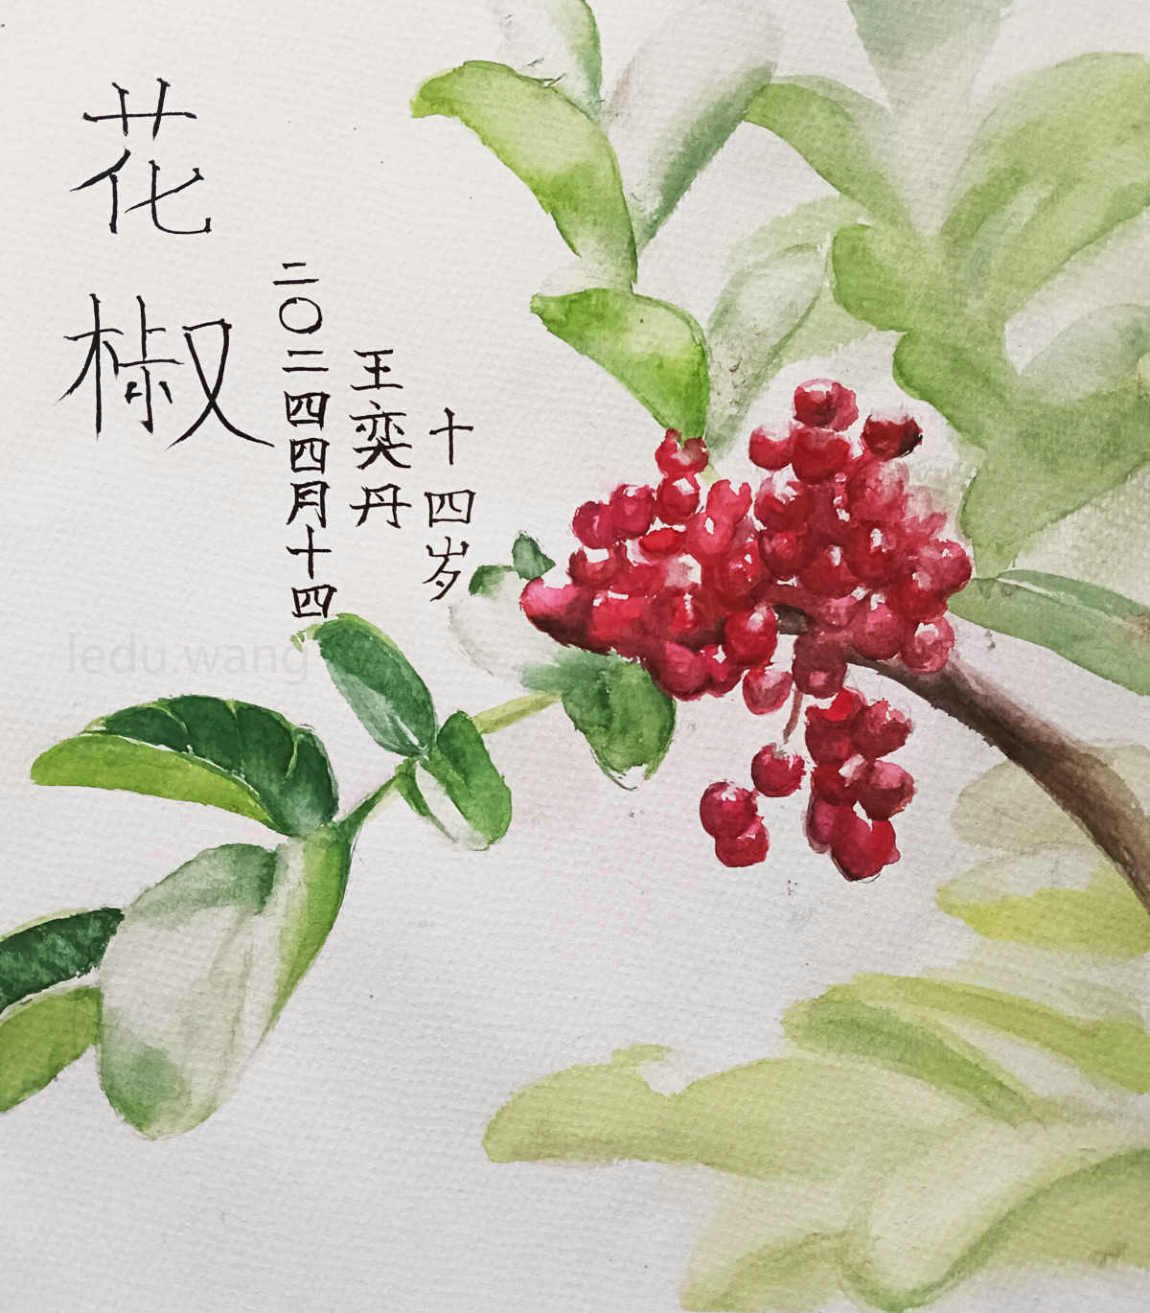 花椒
二〇二四四月十四
王奕丹
十四岁
ledu.wang